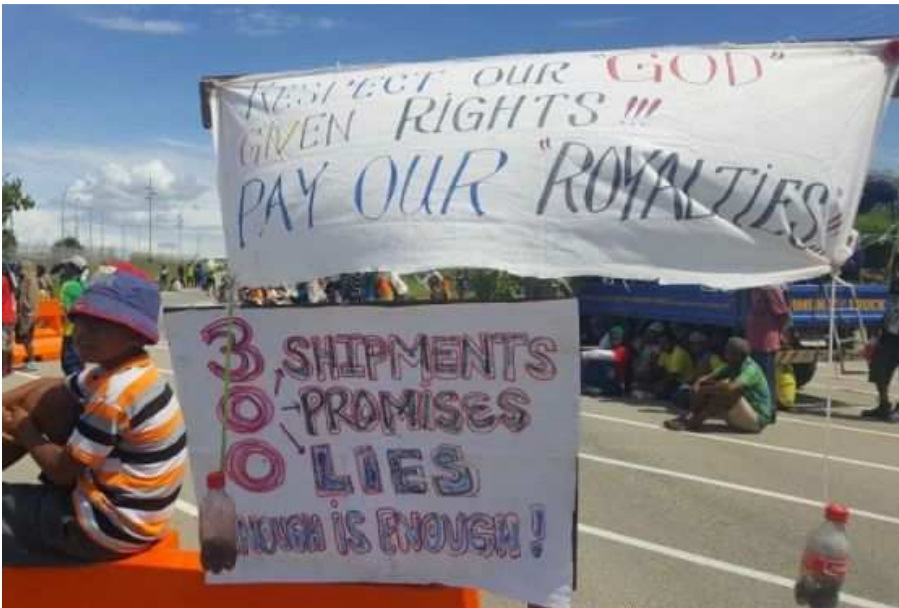 RESPECT OUR "GOD"
GIVEN RIGHTS!!!
PAY OUR "ROYALTIES"!!
300 SHIPMENTS
PROMISES
LIES
ENOUGH IS ENOUGH!
TRUCK